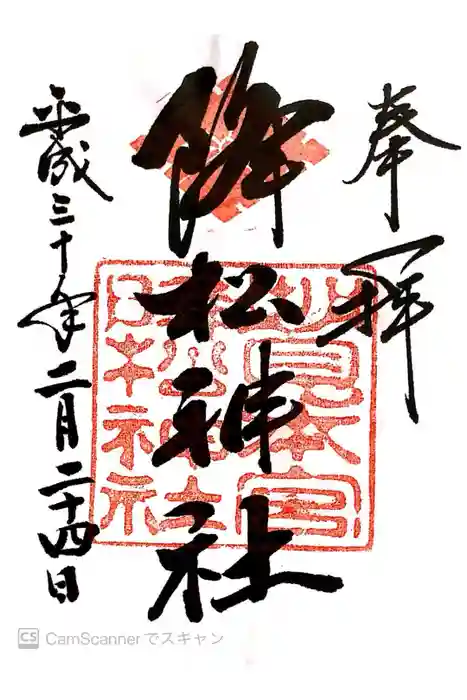 奉拝
鉾松神社
平成三十年二月二十四日
CS CamScannerでスキャン